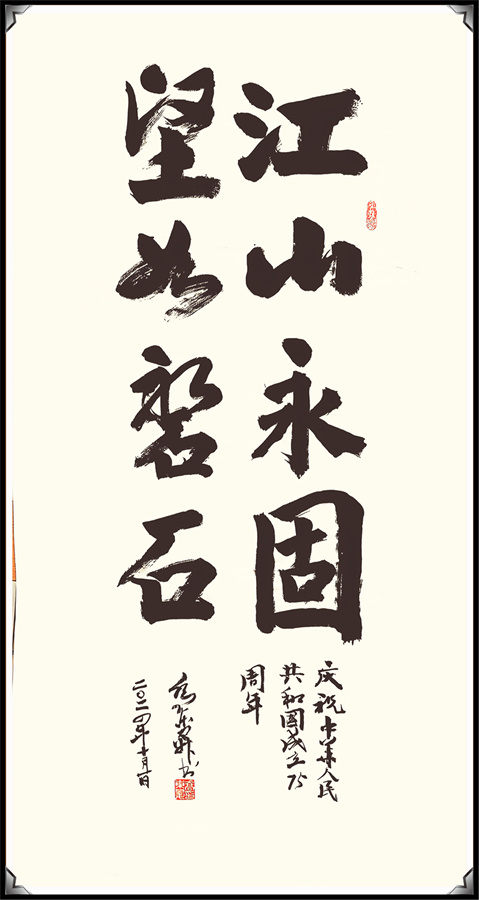 江山永固
坚如磐石
庆祝中华人民
共和国成立75
周年
书
二〇二四年十月一日